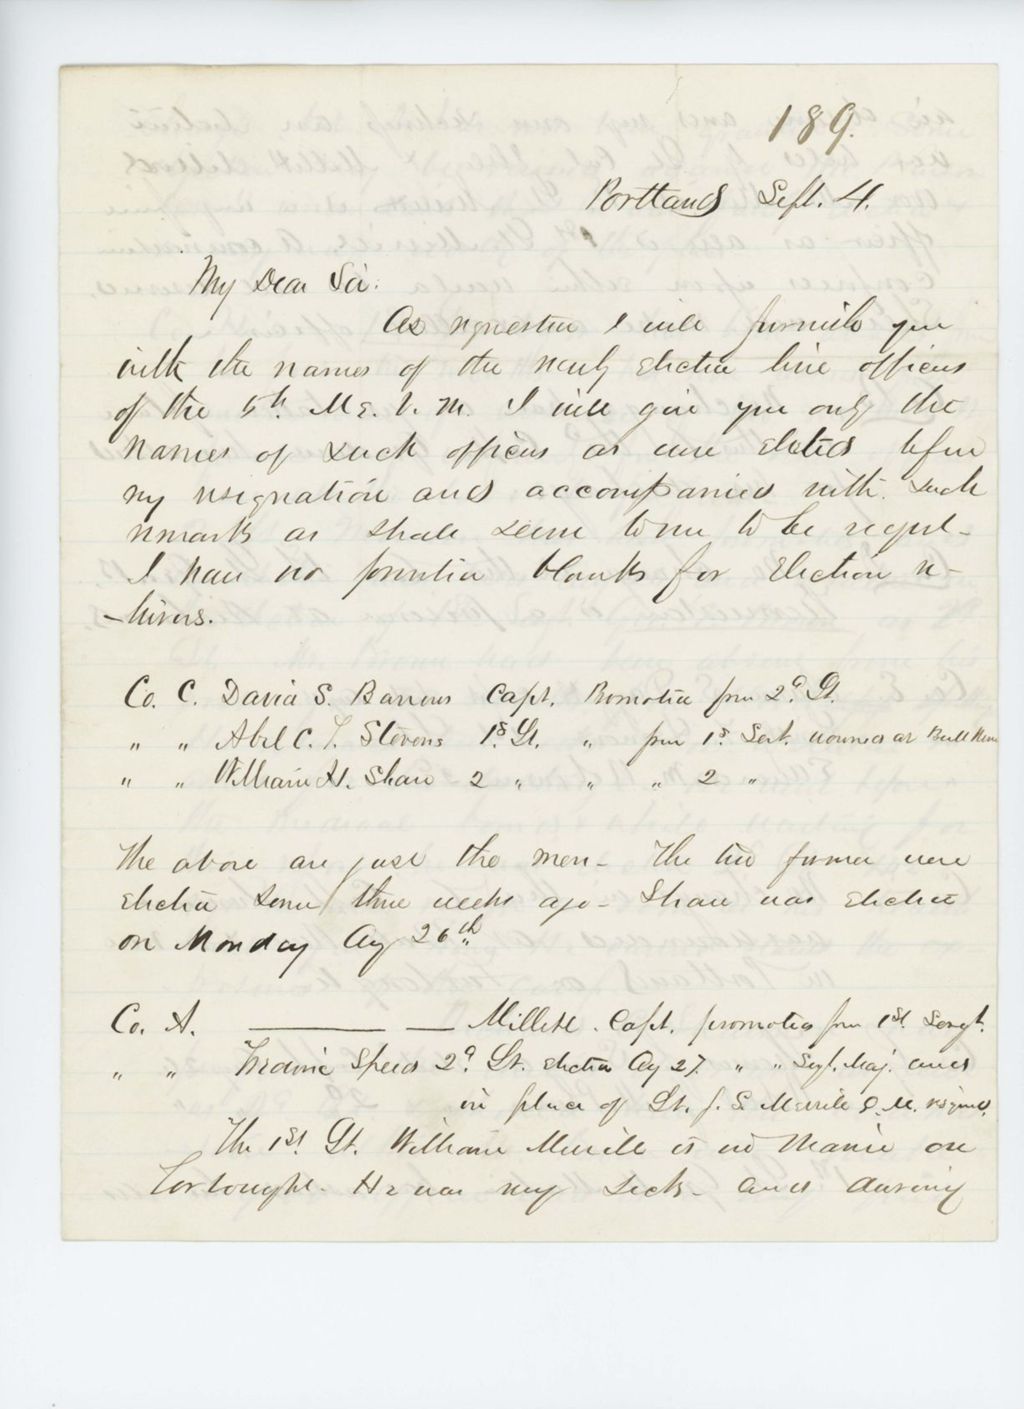 189.
Portland Sept. 4.
My Dear Sir:
As requested I will furnish you
with the names of the newly elected line officers
of the 5th. Me. V. M. I will give you only the
names of such officers as were elected before
my resignation and accompanied with such
remarks as shall seem to me to be requst-
I have no printed blanks for Election re-
-turns.
Co. C. David S. Barrows Capt. Promoted from 2d. Lt.
" " Abel C. T. Stevens 1st. Lt. " from 1st. Sert. wounded at Bull Run
" " William H. Shaw 2 " " " 2 "
The above are just the men- The two former were
elected some three weeks ago- Shaw was elected
on Monday Aug 26th.
Co. A. Millett. Capt. promoted from 1st. Sergt.
" " Frederic Speed 2d. Lt. elected Aug 27. " " Sergt. Maj. and
in place of Lt. J. S. Merrill Q. M. resigned.
The 1st. Lt. William Merrill is in Maine on
Forlought. He was very sick- and during